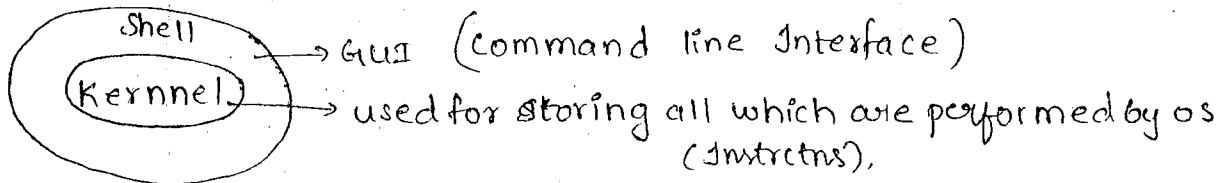 Shell
→ GUI (Command line Interface)
Kernnel → used for storing all which are performed by os
(Instrctns).